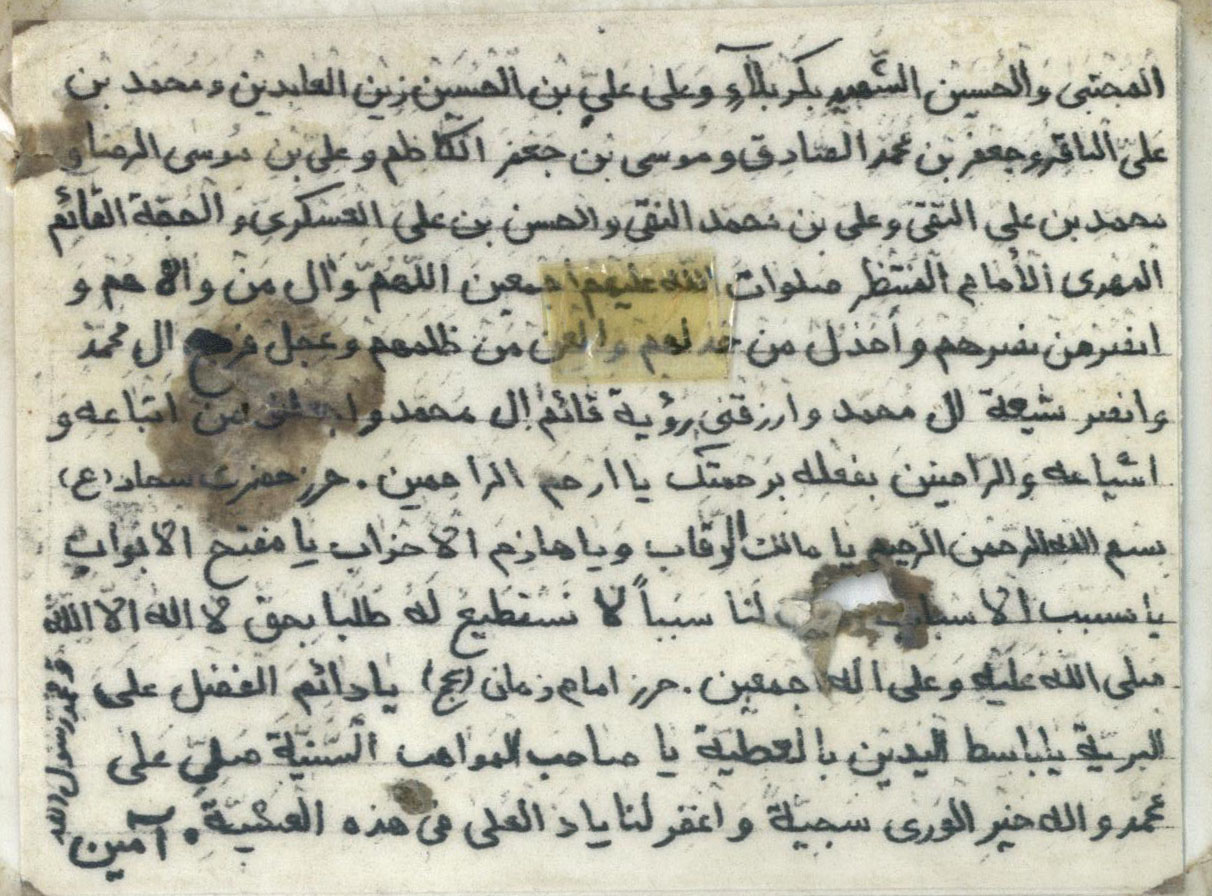 المجتبى والحسين الشهيد بكربلآء وعلى علي بن الحسين زين العابدين ومحمد بن
علىّ الباقر وجعفر بن محمد الصادق وموسى بن جعفر الكاظم وعلى بن موسى الرضا و
محمد بن على التقى وعلى بن محمد النقى والحسن بن على العسكرى و الحجة القائم
المهدى الأمام المنتظر صلوات الله عليهم اجمعين اللهم وال من والاهم و
انصر من نصرهم و أخذل من خذلهم والعن من ظلمهم وعجل فرج ال محمد
وانصر شيعة ال محمد وارزقنى رؤية قائم ال محمد واجعلنى من اتباعه و
اشياعه والراضين بفعله برحمتك يا ارحم الراحمين . حرز حضرت سجاد (ع)
بسم الله الرحمن الرحيم يا مالك الرقاب ويا هازم الاحزاب يا مفتح الابواب
يا مسبب الاسباب لنا سبباً لا نستطيع له طلبا بحق لا اله الا الله
و محمد رسول الله
صلى الله عليه وعلى اله اجمعين . حرز امام زمان (عج) يا دائم الفضل على
البرية يا باسط اليدين بالعطية يا صاحب المواهب السّنيّة صلىّ على
محمد واله خير الورى سجية واغفر لنا ياذ العلى فى هذه العشيّة . آمين